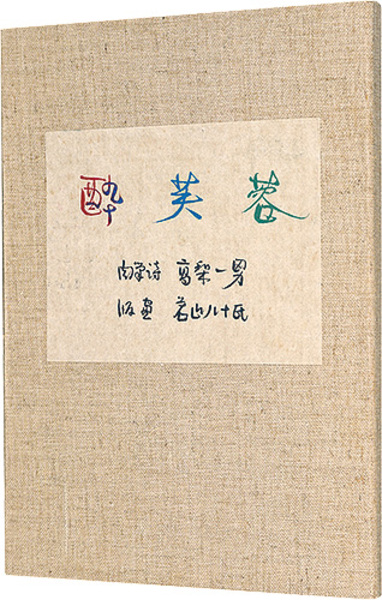 酔芙蓉
肉筆詩 高梨一男
版画 若山八十氏